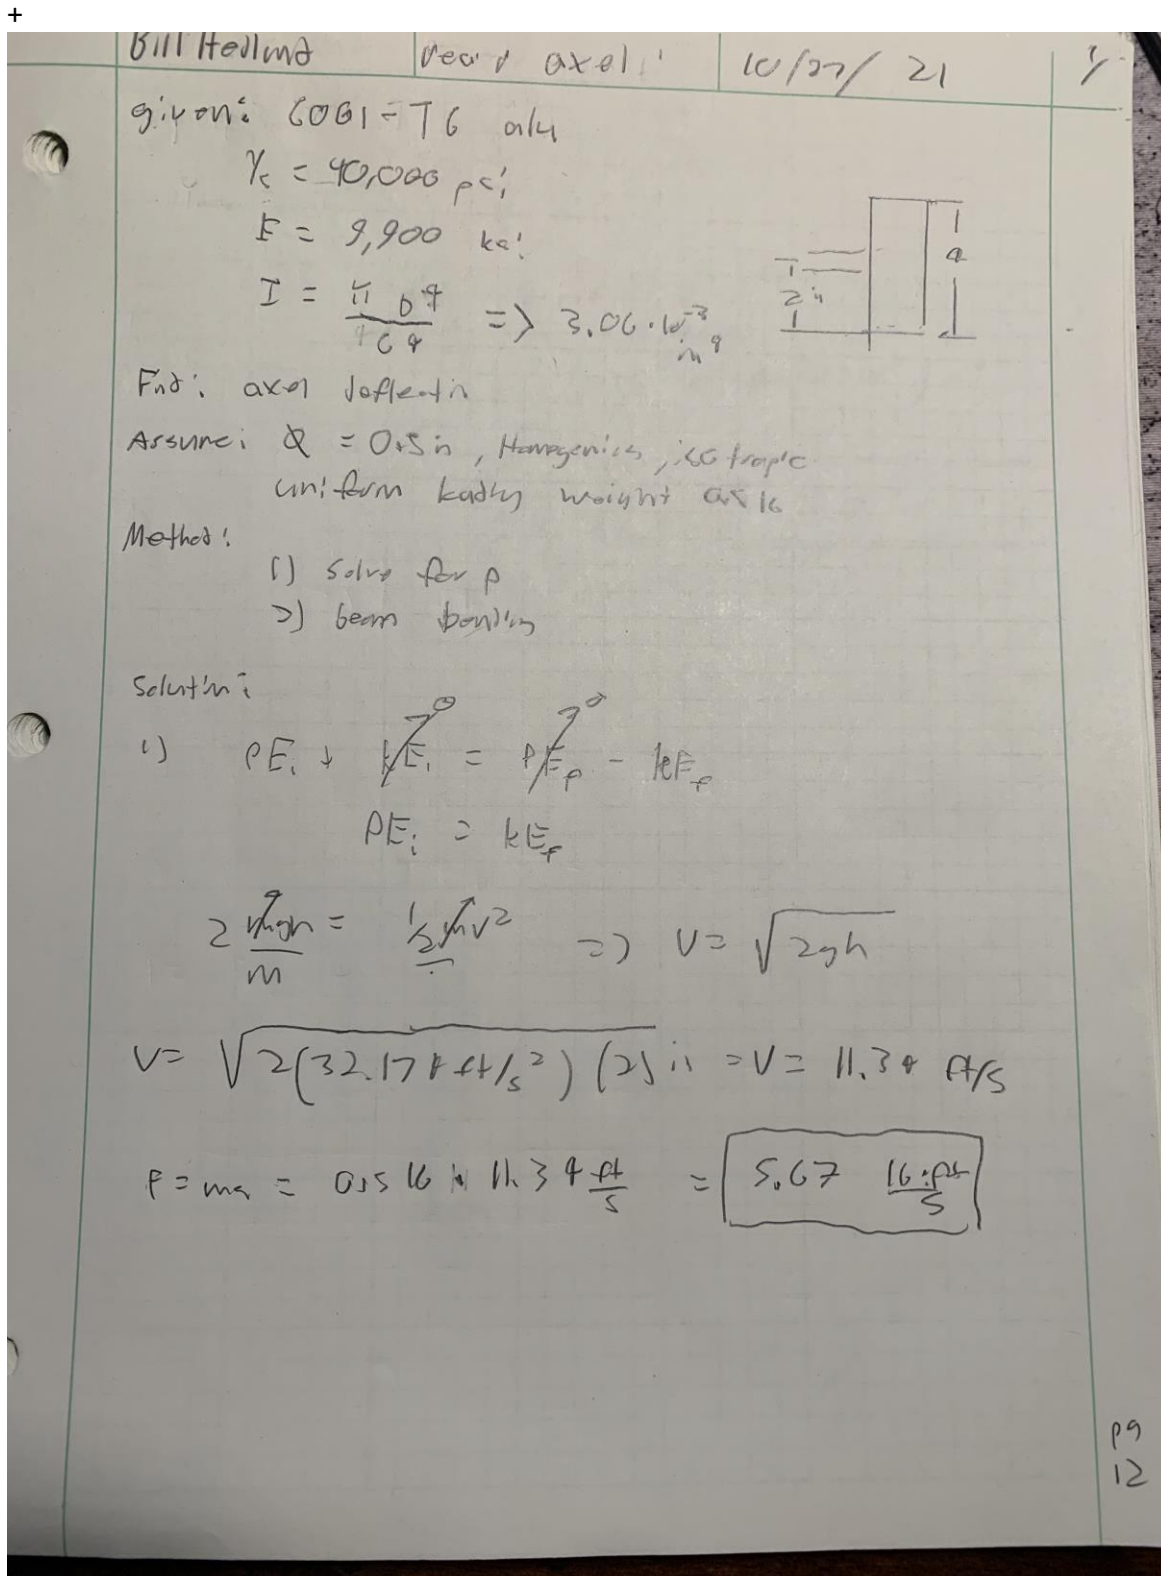 +
Bill Hellund rear axel: 10/27/21 1/
given: 6061-T6 alu
Yc = 40,000 psi
E = 9,900 ksi
I = π D⁴ / 64 => 3.06·10⁻³ in⁴
4
2 in
Find: axel deflectin
Assume: Ø = 0.5 in, Homogenics, isotropic
uniform loading weight 0.5 lb
Method:
1) solve for P
2) beam bending
Solutin:
1) PEi + KEi⁰ = PEf⁰ - kEf
PEi = kEf
2 mgh / m = 1/2 mv² => V = √2gh
V = √2(32.174 ft/s²) (2) in = V = 11.34 ft/s
F = ma = 0.5 lb · 11.34 ft/s = 5.67 lb·ft/s
pg
12